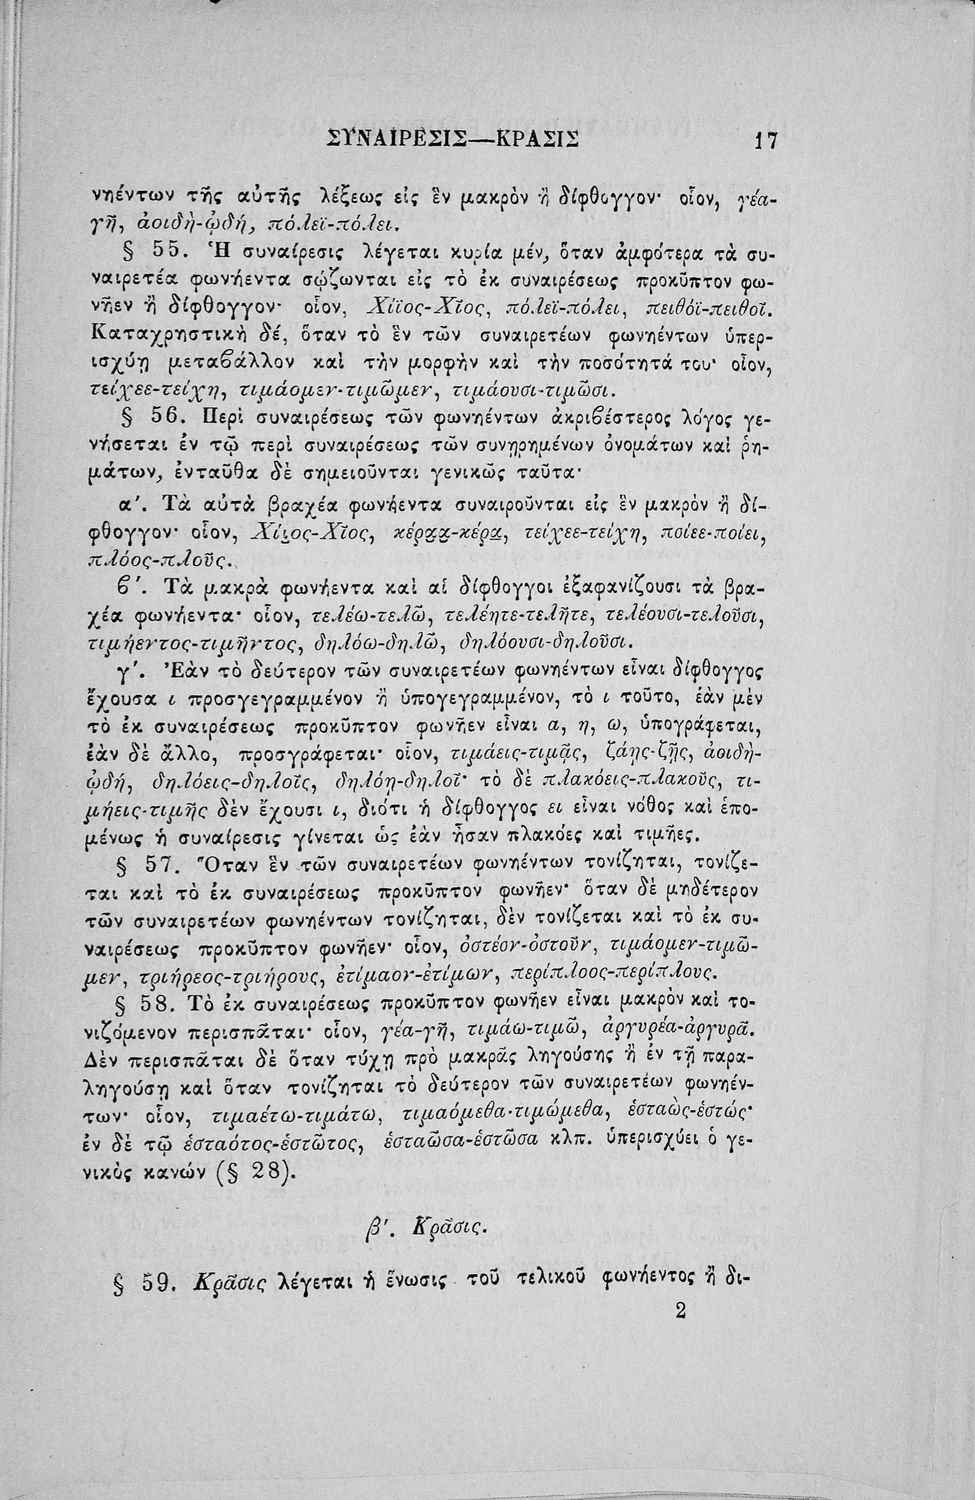 ΣΥΝΑΙΡΕΣΙΣ—ΚΡΑΣΙΣ 17
νηέντων τῆς αὐτῆς λέξεως εἰς ἓν μακρὸν ἢ δίφθογγον· οἷον, γέα-
γῆ, ἀοιδὴ-ᾠδή, πόλεϊ-πόλει.
§ 55. Ἡ συναίρεσις λέγεται κυρία μέν, ὅταν ἀμφότερα τὰ συ-
ναιρετέα φωνήεντα σῴζωνται εἰς τὸ ἐκ συναιρέσεως προκῦπτον φω-
νῆεν ἢ δίφθογγον· οἷον, Χίϊος-Χῖος, πόλεϊ-πόλει, πειθόϊ-πειθοῖ.
Καταχρηστικὴ δέ, ὅταν τὸ ἓν τῶν συναιρετέων φωνηέντων ὑπερ-
ισχύῃ μεταβάλλον καὶ τὴν μορφὴν καὶ τὴν ποσότητά του· οἷον,
τείχεε-τείχη, τιμάομεν-τιμῶμεν, τιμάουσι-τιμῶσι.
§ 56. Περὶ συναιρέσεως τῶν φωνηέντων ἀκριβέστερος λόγος γε-
νήσεται ἐν τῷ περὶ συναιρέσεως τῶν συνῃρημένων ὀνομάτων καὶ ῥη-
μάτων, ἐνταῦθα δὲ σημειοῦνται γενικῶς ταῦτα·
α'. Τὰ αὐτὰ βραχέα φωνήεντα συναιροῦνται εἰς ἓν μακρὸν ἢ δί-
φθογγον· οἷον, Χίϊος-Χῖος, κέραα-κέρα, τείχεε-τείχη, ποίεε-ποίει,
πλόος-πλοῦς.
β'. Τὰ μακρὰ φωνήεντα καὶ αἱ δίφθογγοι ἐξαφανίζουσι τὰ βρα-
χέα φωνήεντα· οἷον, τελέω-τελῶ, τελέητε-τελῆτε, τελέουσι-τελοῦσι,
τιμήεντος-τιμῆντος, δηλόω-δηλῶ, δηλόουσι-δηλοῦσι.
γ'. Ἐὰν τὸ δεύτερον τῶν συναιρετέων φωνηέντων εἶναι δίφθογγος
ἔχουσα ι προσγεγραμμένον ἢ ὑπογεγραμμένον, τὸ ι τοῦτο, ἐὰν μὲν
τὸ ἐκ συναιρέσεως προκῦπτον φωνῆεν εἶναι α, η, ω, ὑπογράφεται,
ἐὰν δὲ ἄλλο, προσγράφεται· οἷον, τιμάεις-τιμᾷς, ζάῃς-ζῇς, ἀοιδὴ-
ᾠδή, δηλόεις-δηλοῖς, δηλόῃ-δηλοῖ· τὸ δὲ πλακόεις-πλακοῦς, τι-
μήεις-τιμῆς δὲν ἔχουσι ι, διότι ἡ δίφθογγος ει εἶναι νόθος καὶ ἑπο-
μένως ἡ συναίρεσις γίνεται ὡς ἐὰν ἦσαν πλακόες καὶ τιμῆες.
§ 57. Ὅταν ἓν τῶν συναιρετέων φωνηέντων τονίζηται, τονίζε-
ται καὶ τὸ ἐκ συναιρέσεως προκῦπτον φωνῆεν· ὅταν δὲ μηδέτερον
τῶν συναιρετέων φωνηέντων τονίζηται, δὲν τονίζεται καὶ τὸ ἐκ συ-
ναιρέσεως προκῦπτον φωνῆεν· οἷον, ὀστέον-ὀστοῦν, τιμάομεν-τιμῶ-
μεν, τριήρεος-τριήρους, ἐτίμαον-ἐτίμων, περίπλοος-περίπλους.
§ 58. Τὸ ἐκ συναιρέσεως προκῦπτον φωνῆεν εἶναι μακρὸν καὶ το-
νιζόμενον περισπᾶται· οἷον, γέα-γῆ, τιμάω-τιμῶ, ἀργυρέα-ἀργυρᾶ.
Δὲν περισπᾶται δὲ ὅταν τύχῃ πρὸ μακρᾶς ληγούσης ἢ ἐν τῇ παρα-
ληγούσῃ καὶ ὅταν τονίζηται τὸ δεύτερον τῶν συναιρετέων φωνηέν-
των· οἷον, τιμαέτω-τιμάτω, τιμαόμεθα-τιμώμεθα, ἑσταὼς-ἑστώς·
ἐν δὲ τῷ ἑσταότος-ἑστῶτος, ἑσταῶσα-ἑστῶσα κλπ. ὑπερισχύει ὁ γε-
νικὸς κανών (§ 28).
β'. Κρᾶσις.
§ 59. Κρᾶσις λέγεται ἡ ἕνωσις τοῦ τελικοῦ φωνήεντος ἢ δι-
2